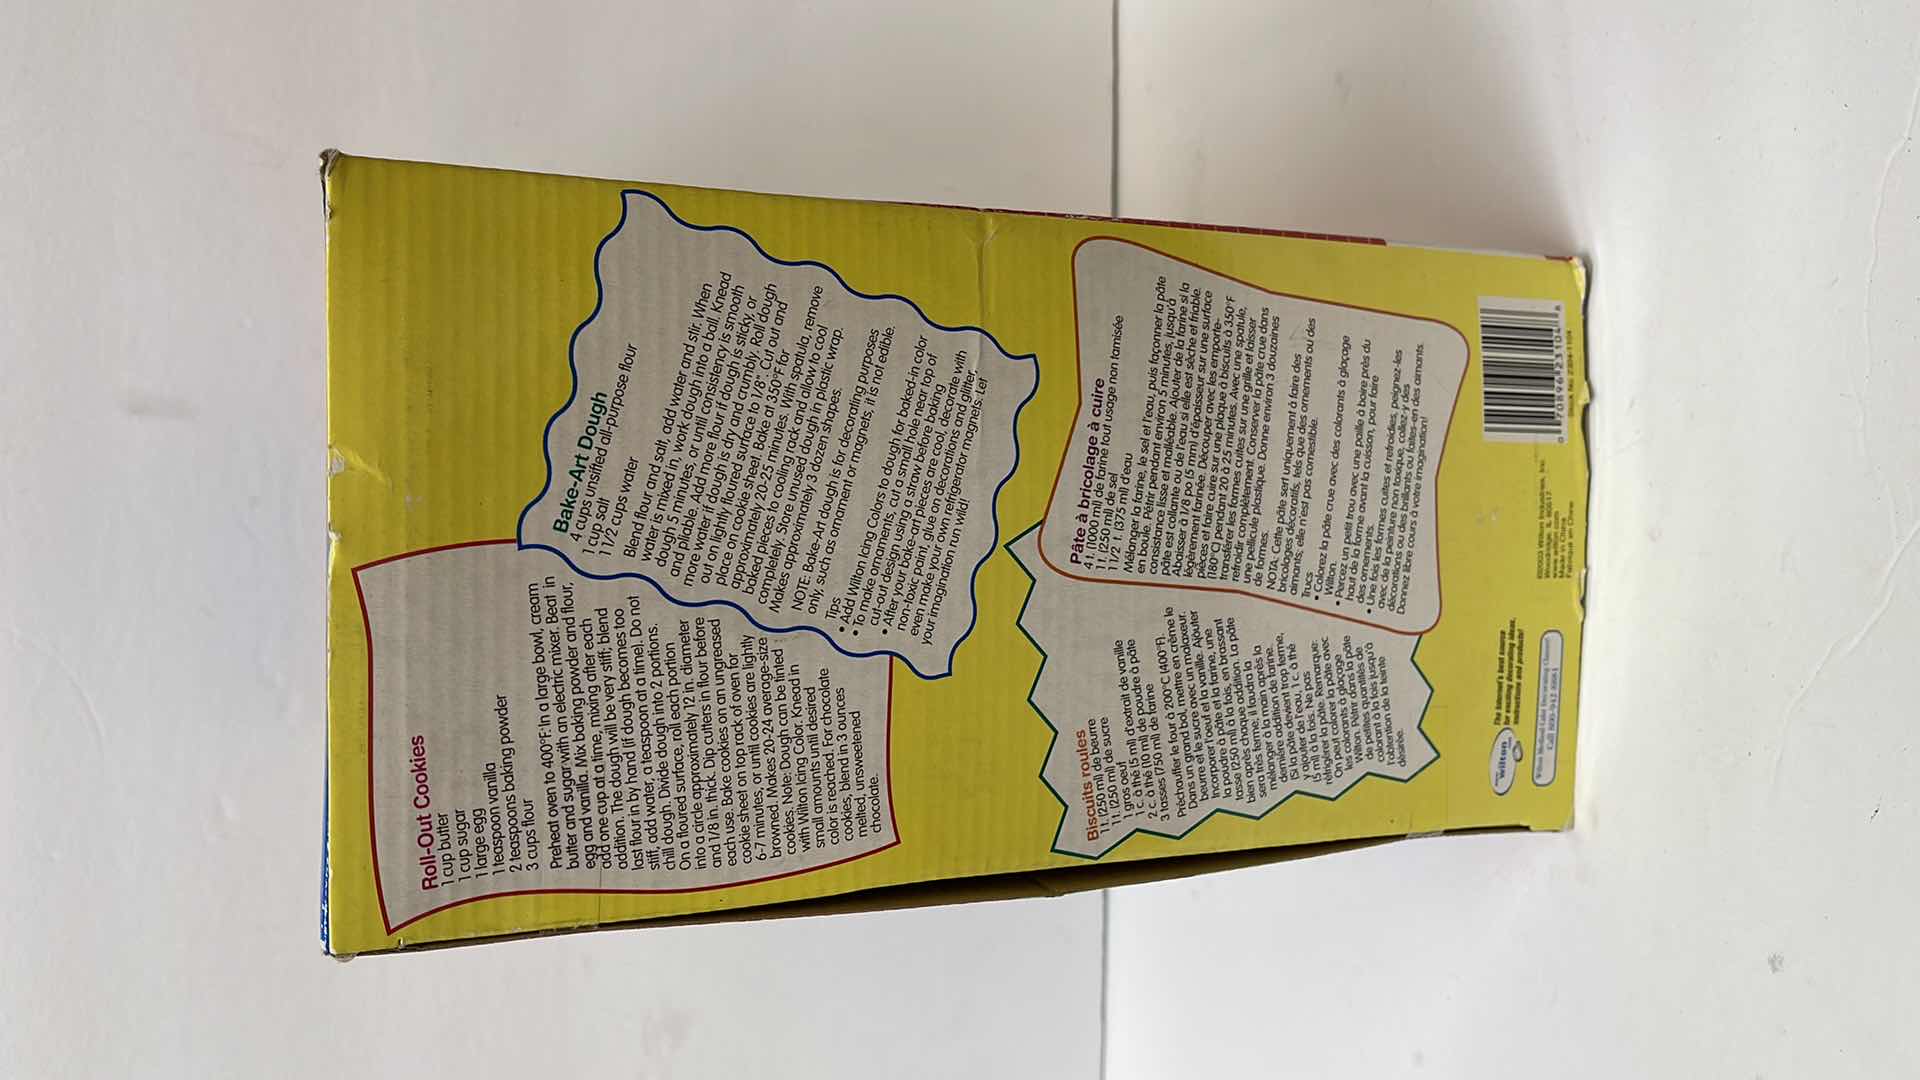 Roll-Out Cookies
1 cup butter
1 cup sugar
1 large egg
1 teaspoon vanilla
2 teaspoons baking powder
3 cups flour
Preheat oven to 400°F. In a large bowl, cream
butter and sugar with an electric mixer. Beat in
egg and vanilla. Mix baking powder and flour,
add one cup at a time, mixing after each
addition. The dough will be very stiff; blend
last flour in by hand (if dough becomes too
stiff, add water, a teaspoon at a time). Do not
chill dough. Divide dough into 2 portions.
On a floured surface, roll each portion
into a circle approximately 12 in. diameter
and 1/8 in. thick. Dip cutters in flour before
each use. Bake cookies on an ungreased
cookie sheet on top rack of oven for
6-7 minutes, or until cookies are lightly
browned. Makes 20-24 average-size
cookies. Note: Dough can be tinted
with Wilton Icing Color. Knead in
small amounts until desired
color is reached. For chocolate
cookies, blend in 3 ounces
melted, unsweetened
chocolate.
Bake-Art Dough
4 cups unsifted all-purpose flour
1 cup salt
1 1/2 cups water
Blend flour and salt, add water and stir. When
water is mixed in, work dough into a ball. Knead
dough 5 minutes, or until consistency is smooth
and pliable. Add more flour if dough is sticky, or
more water if dough is dry and crumbly. Roll dough
out on lightly floured surface to 1/8". Cut out and
place on cookie sheet. Bake at 350°F for
approximately 20-25 minutes. With spatula, remove
baked pieces to cooling rack and allow to cool
completely. Store unused dough in plastic wrap.
Makes approximately 3 dozen shapes.
NOTE: Bake-Art dough is for decorating purposes
only, such as ornament or magnets, it is not edible.
Tips
• Add Wilton Icing Colors to dough for baked-in color
• To make ornaments, cut a small hole near top of
cut-out design using a straw before baking
• After your bake-art pieces are cool, decorate with
non-toxic paint, glue on decorations and glitter,
even make your own refrigerator magnets. Let
your imagination run wild!
Biscuits roulés
1 t. (250 ml) de beurre
1 t. (250 ml) de sucre
1 gros oeuf
1 c. à thé (5 ml) d'extrait de vanille
2 c. à thé (10 ml) de poudre à pâte
3 tasses (750 ml) de farine
Préchauffer le four à 200°C (400°F).
Dans un grand bol, mettre en crème le
beurre et le sucre avec un malaxeur.
Incorporer l'oeuf et la vanille. Ajouter
la poudre à pâte et la farine, une
tasse (250 ml) à la fois, en brassant
bien après chaque addition. La pâte
sera très ferme; il faudra la
mélanger à la main après la
dernière addition de farine.
(Si la pâte devient trop ferme,
y ajouter de l'eau, 1 c. à thé
(5 ml) à la fois. Ne pas
réfrigérer la pâte. Remarque:
On peut colorer la pâte avec
les colorants à glaçage
Wilton. Pétrir dans la pâte
de petites quantités de
colorant à la fois jusqu'à
l'obtention de la teinte
désirée.
Pâte à bricolage à cuire
4 t. (1000 ml) de farine tout usage non tamisée
1 t. (250 ml) de sel
1 1/2 t. (375 ml) d'eau
Mélanger la farine, le sel et l'eau, puis façonner la pâte
en boule. Pétrir pendant environ 5 minutes, jusqu'à
consistance lisse et malléable. Ajouter de la farine si la
pâte est collante ou de l'eau si elle est sèche et friable.
Abaisser à 1/8 po (5 mm) d'épaisseur sur une surface
légèrement farinée. Découper avec les emporte-
pièces et faire cuire sur une plaque à biscuits à 350°F
(180°C) pendant 20 à 25 minutes. Avec une spatule,
transférer les formes cuites sur une grille et laisser
refroidir complètement. Conserver la pâte crue dans
une pellicule plastique. Donne environ 3 douzaines
de formes.
NOTA: Cette pâte sert uniquement à faire des
bricolages décoratifs, tels que des ornements ou des
aimants; elle n'est pas comestible.
Trucs
• Colorez la pâte crue avec des colorants à glaçage
Wilton.
• Percez un petit trou avec une paille à boire près du
haut de la forme avant la cuisson, pour faire
des ornements.
• Une fois les formes cuites et refroidies, peignez-les
avec de la peinture non toxique, collez-y des
décorations ou des brillants ou faites-en des aimants.
Donnez libre cours à votre imagination!
Wilton
The Internet's best source
for exciting decorating ideas,
instructions and products!
Call 800-942-8881
©2003 Wilton Industries, Inc.
Woodridge, IL 60517
www.wilton.com
Made in China
Fabriqué en Chine
0 70896 23104 8
Stock No. 2304-1104